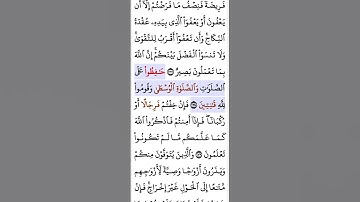 فَرِيضَةً فَنِصْفُ مَا فَرَضْتُمْ إِلَّآ أَن
يَعْفُونَ أَوْ يَعْفُوَا۟ ٱلَّذِى بِيَدِهِۦ عُقْدَةُ
ٱلنِّكَاحِ ۚ وَأَن تَعْفُوٓا۟ أَقْرَبُ لِلتَّقْوَىٰ ۚ
وَلَا تَنسَوُا۟ ٱلْفَضْلَ بَيْنَكُمْ ۚ إِنَّ ٱللَّهَ
بِمَا تَعْمَلُونَ بَصِيرٌ ۝ حَـٰفِظُوا۟ عَلَى
ٱلصَّلَوَٰتِ وَٱلصَّلَوٰةِ ٱلْوُسْطَىٰ وَقُومُوا۟
لِلَّهِ قَـٰنِتِينَ ۝ فَإِنْ خِفْتُمْ فَرِجَالًا أَوْ
رُكْبَانًا ۖ فَإِذَآ أَمِنتُمْ فَٱذْكُرُوا۟ ٱللَّهَ
كَمَا عَلَّمَكُم مَّا لَمْ تَكُونُوا۟
تَعْلَمُونَ ۝ وَٱلَّذِينَ يُتَوَفَّوْنَ مِنكُمْ
وَيَذَرُونَ أَزْوَٰجًا وَصِيَّةً لِّأَزْوَٰجِهِم
مَّتَـٰعًا إِلَى ٱلْحَوْلِ غَيْرَ إِخْرَاجٍ ۚ فَإِنْ